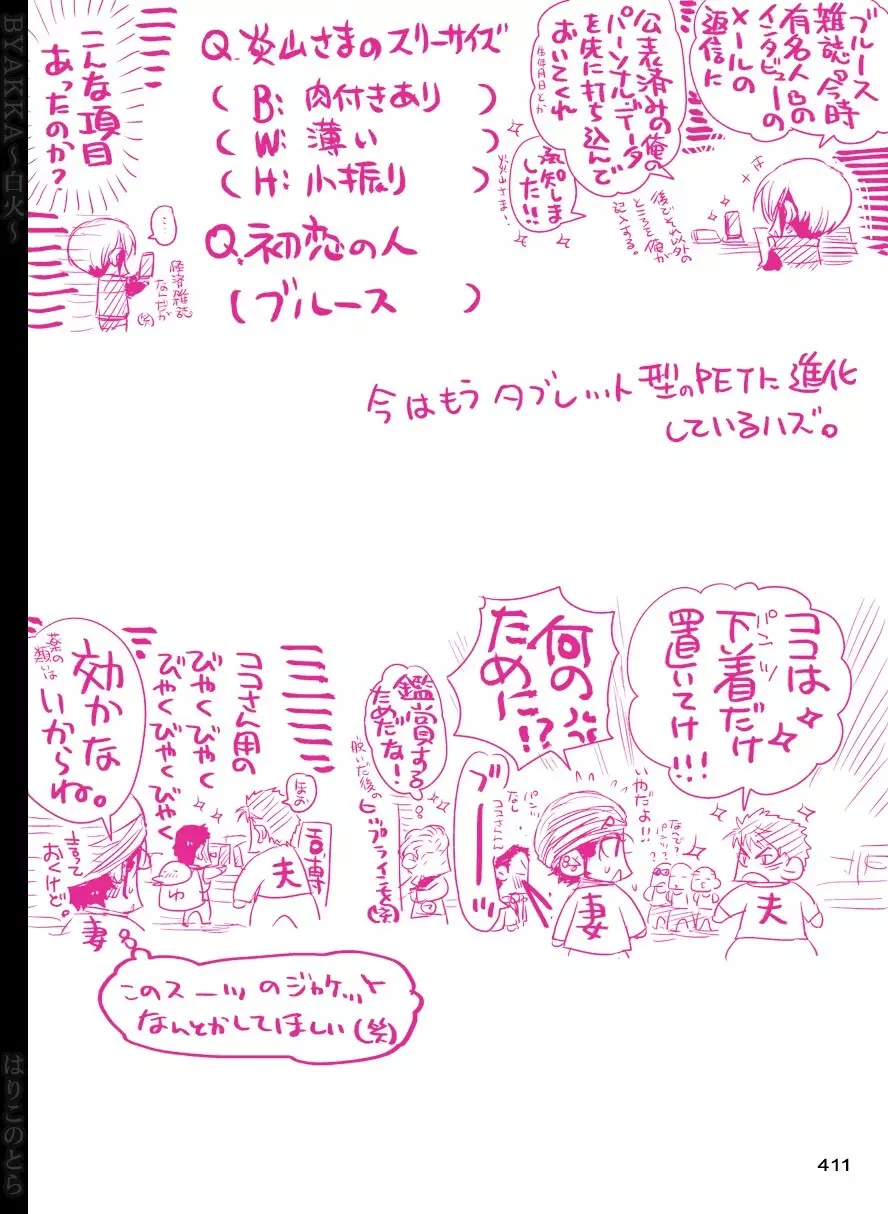 ブルース
雑誌「今時
有名人」の
インタビューの
メールの
返信に
公表済みの俺の
パーソナルデータ
を先に打ち込んで
おいてくれ
生年月日とか
承知しま
した!!
炎山さま、
後でそれ以外の
ところを俺が
記入する。
Q.炎山さまのスリーサイズ
(B:肉付きあり)
(W:薄い)
(H:小振り)
Q.初恋の人
(ブルース)
こんな項目
あったのか?
…
経済雑誌
なんだが
(笑)
今はもうタブレット型のPETに進化
しているハズ。
ココは
下着だけ
パンツ
置いてけ!!!
なんで?
パンツ?
いやだよ!!
何の
ために!?
パンツ
なし
ココさん
ブーーッ
鑑賞する
ためだな!
脱いだ後の
ヒップラインを(笑)
夫
妻
ココさん用の
びやくびやく
びやくびやくびやく
ほお
効かな
いからね。
薬の
類いは
言って
おくけど。
夫
ゆ
妻
このスーツのジャケット
なんとかしてほしい(笑)
BYAKKA～白火～
はりこのとら
411